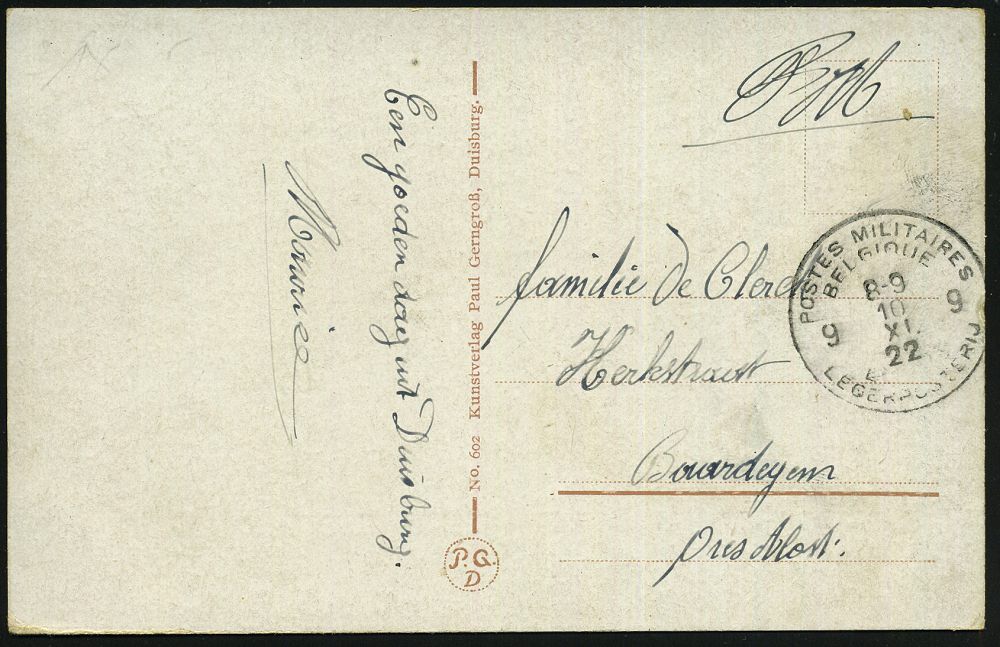 Een goeden dag uit Duisburg.
Maurice
No. 602 Kunstverlag Paul Gerngroß, Duisburg.
P. G.
D
SM
POSTES MILITAIRES
BELGIQUE
8-9
10
XI.
22
9 9
LEGERPOSTERIJ
familie De Clerc
Kerkstraat
Baardegem
près Alost.